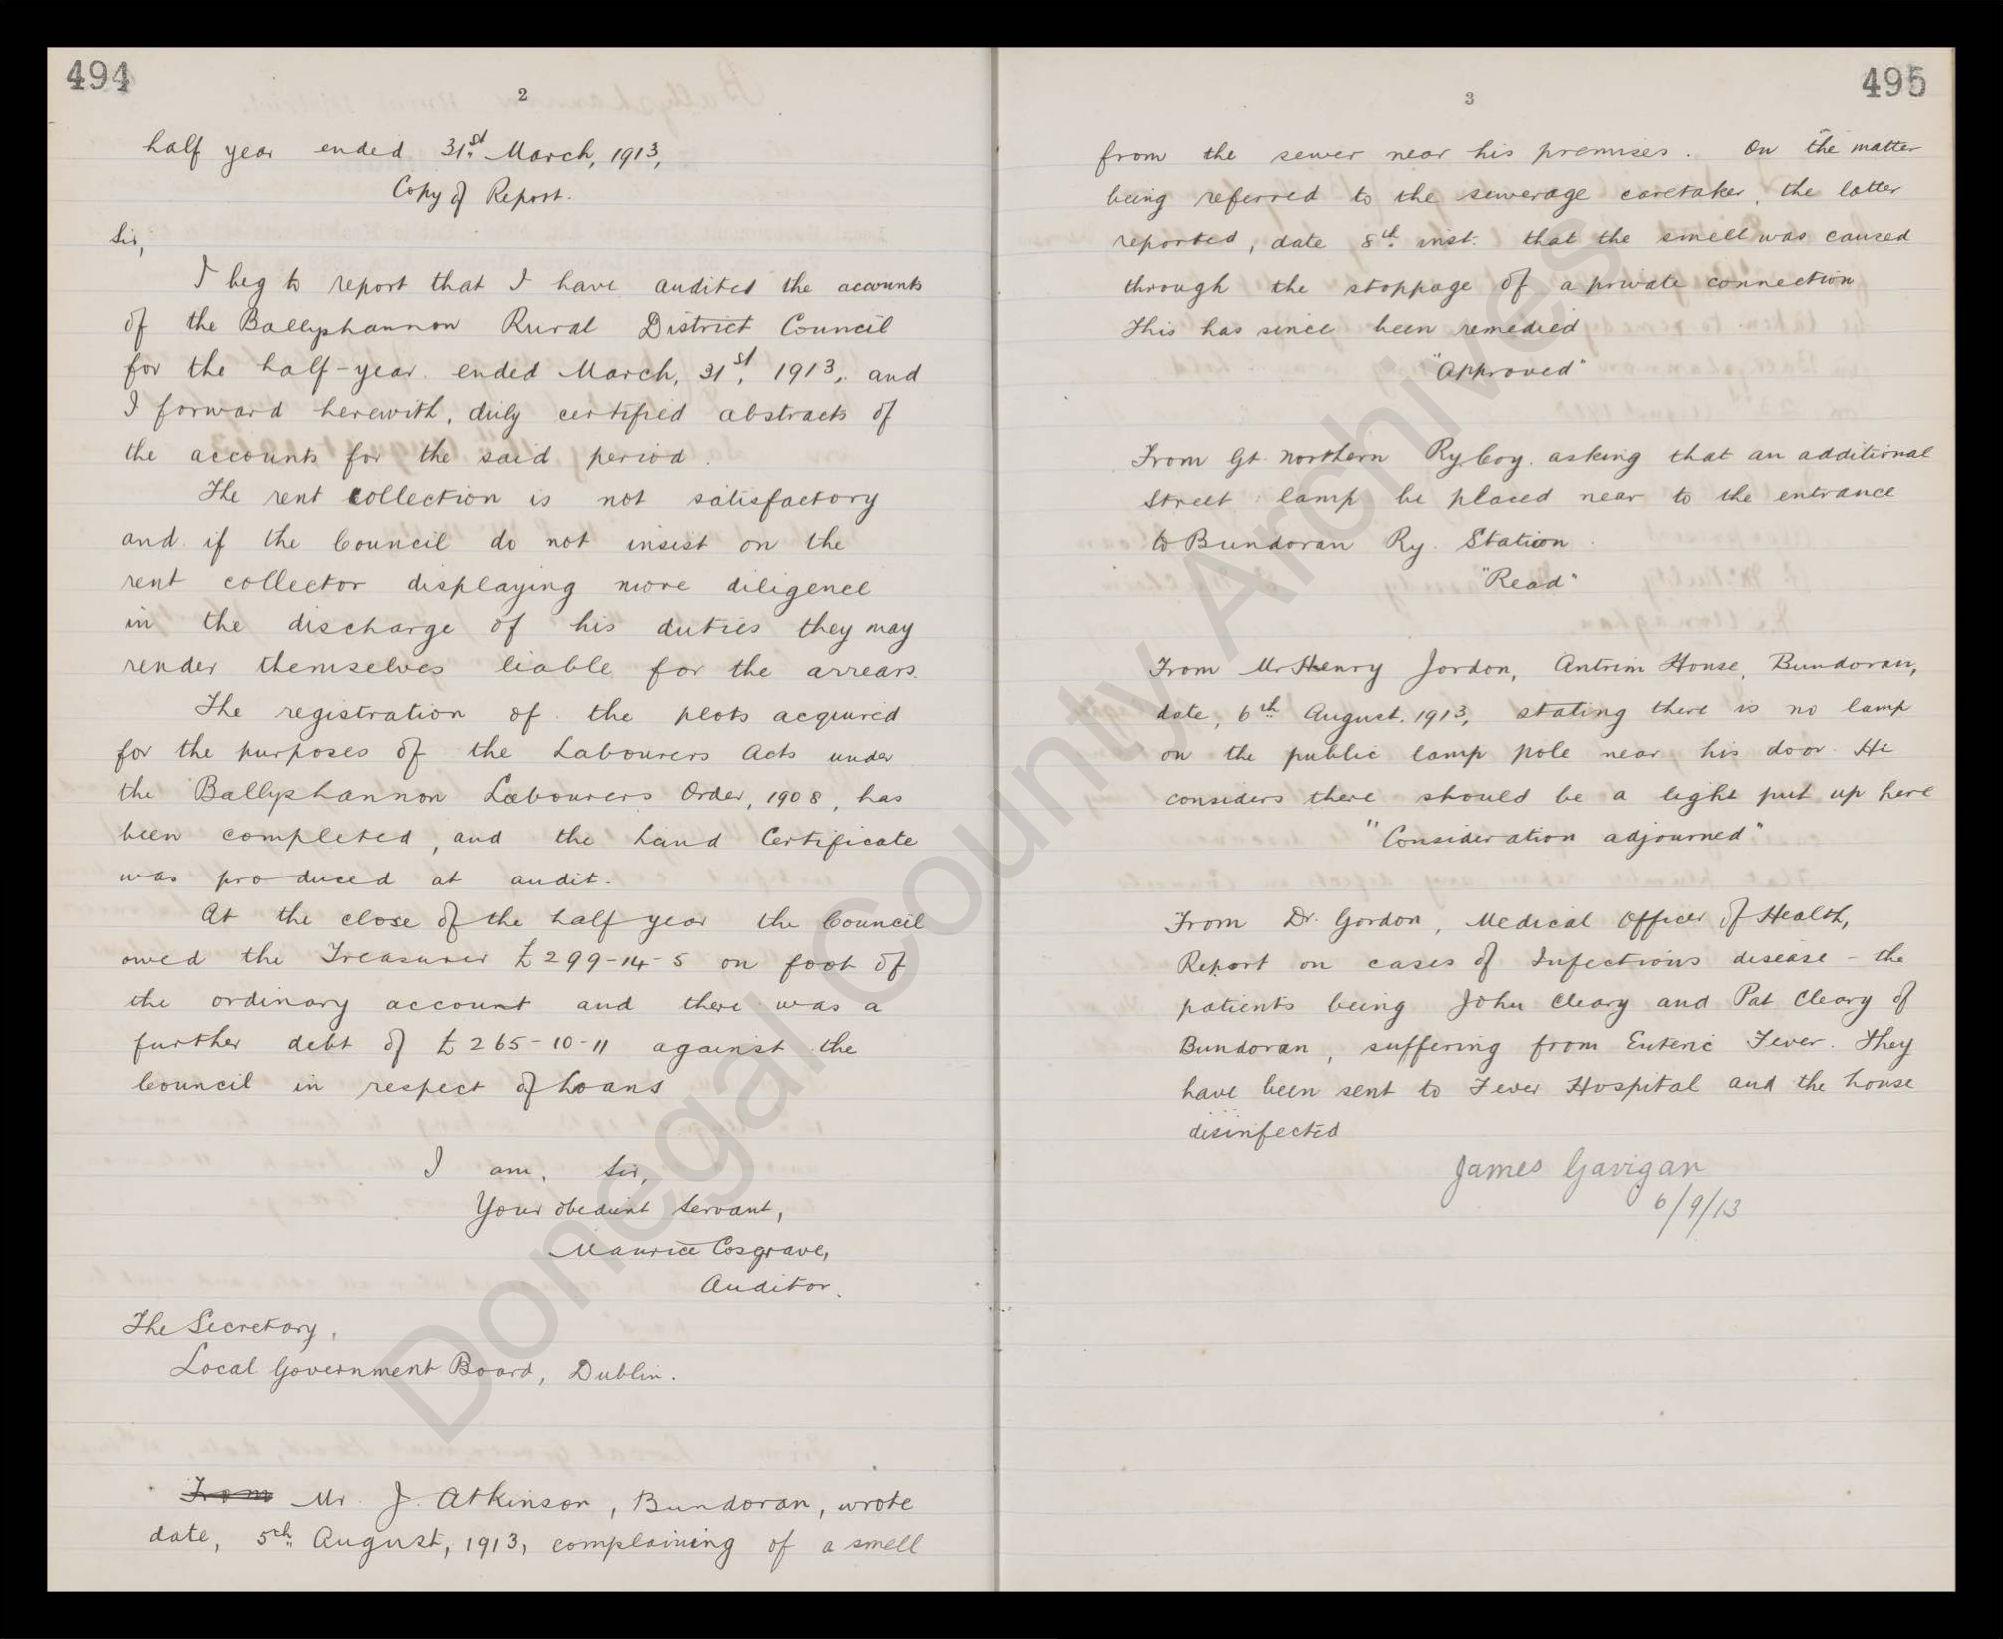 494
2
half year ended 31st March, 1913,
Copy of Report.
Sir,
I beg to report that I have audited the accounts
of the Ballyshannon Rural District Council
for the half-year ended March, 31st, 1913, and
I forward herewith, duly certified abstracts of
the accounts for the said period.
The rent collection is not satisfactory
and if the Council do not insist on the
rent collector displaying more diligence
in the discharge of his duties they may
render themselves liable for the arrears.
The registration of the plots acquired
for the purposes of the Labourers Acts under
the Ballyshannon Labourers Order, 1908, has
been completed, and the Land Certificate
was produced at audit.
At the close of the half year the Council
owed the Treasurer £299-14-5 on foot of
the ordinary account and there was a
further debt of £265-10-11 against the
Council in respect of Loans
I am, Sir,
Your obedient Servant,
Maurice Cosgrave,
Auditor.
The Secretary,
Local Government Board, Dublin.
From Mr. J. Atkinson, Bundoran, wrote
date, 5th August, 1913, complaining of a smell
495
3
from the sewer near his premises. On the matter
being referred to the sewerage caretaker, the latter
reported, date 8th inst. that the smell was caused
through the stoppage of a private connection
This has since been remedied
"Approved"
From Gt. Northern Ry. Coy. asking that an additional
Street lamp be placed near to the entrance
to Bundoran Ry. Station.
"Read"
From Mr Henry Jordon, Antrim House, Bundoran,
date, 6th August, 1913, stating there is no lamp
on the public lamp pole near his door. He
considers there should be a light put up here
"Consideration adjourned"
From Dr. Gordon, Medical Officer of Health,
Report on cases of Infectious disease - the
patients being John Cleary and Pat Cleary of
Bundoran, suffering from Enteric Fever. They
have been sent to Fever Hospital and the house
disinfected
James Gavigan
6/9/13
Donegal County Archives